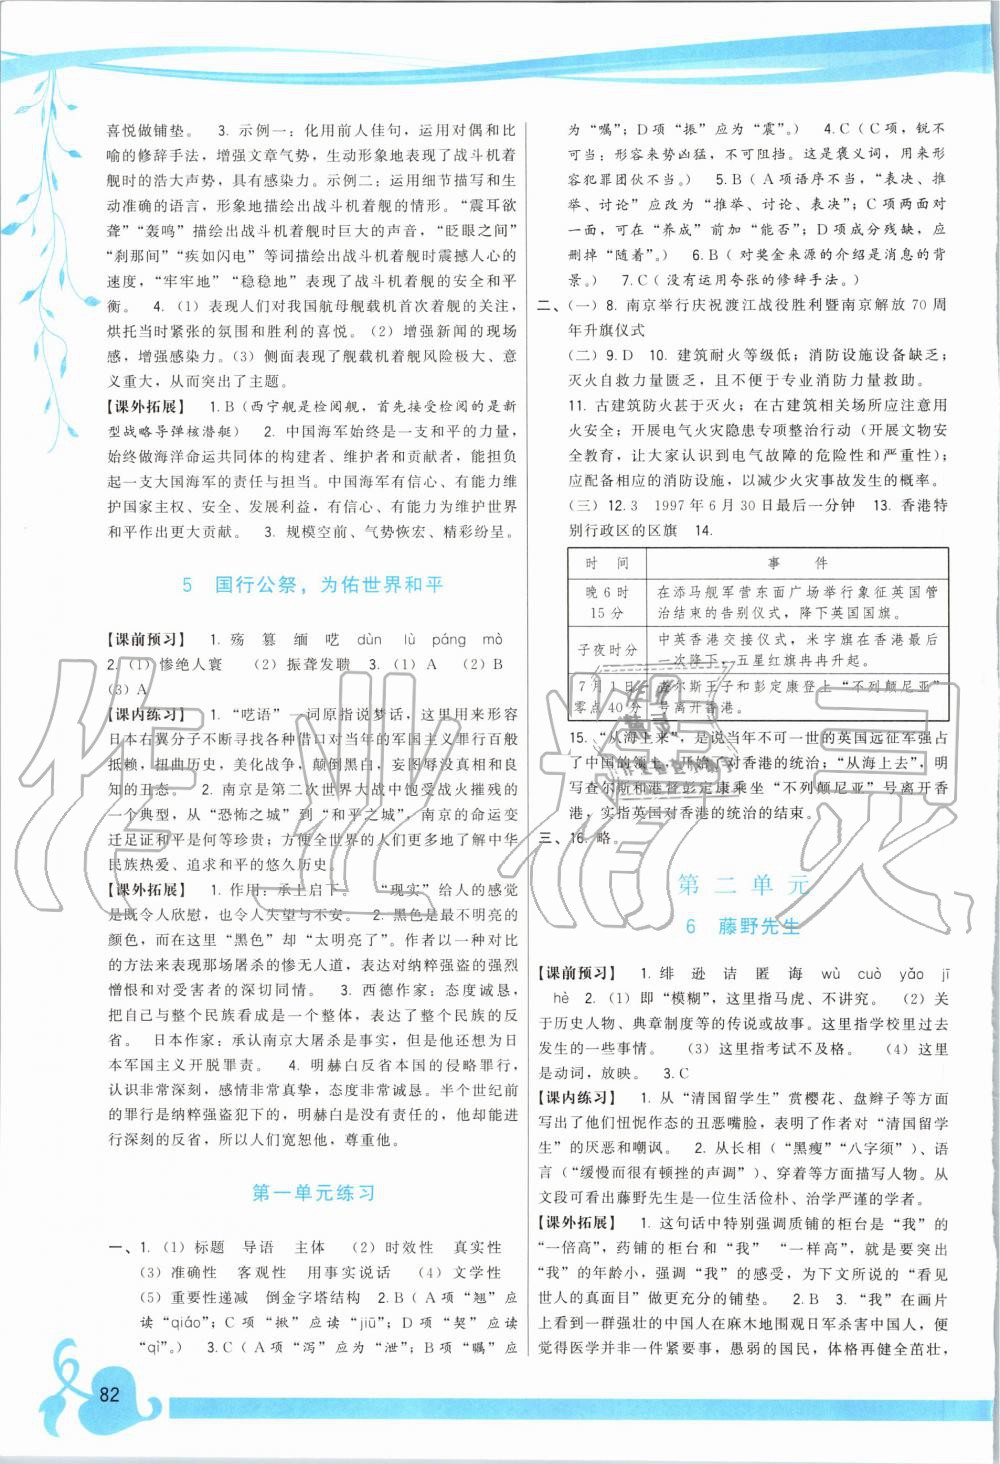 喜悦做铺垫。　3. 示例一：化用前人佳句，运用对偶和比
喻的修辞手法，增强文章气势，生动形象地表现了战斗机着
舰时的浩大声势，具有感染力。示例二：运用细节描写和生
动准确的语言，形象地描绘出战斗机着舰的情形。“震耳欲
聋”“轰鸣”描绘出战斗机着舰时巨大的声音，“眨眼之间”
“刹那间”“疾如闪电”等词描绘出战斗机着舰时震撼人心的
速度，“牢牢地”“稳稳地”表现了战斗机着舰的安全和平
衡。　4.（1）表现人们对我国航母舰载机首次着舰的关注，
烘托当时紧张的氛围和胜利的喜悦。（2）增强新闻的现场
感，增强感染力。（3）侧面表现了舰载机着舰风险极大、意
义重大，从而突出了主题。
【课外拓展】　1.B（西宁舰是检阅舰，首先接受检阅的是新
型战略导弹核潜艇）　2. 中国海军始终是一支和平的力量，
始终做海洋命运共同体的构建者、维护者和贡献者，能担负
起一支大国海军的责任与担当。中国海军有信心、有能力维
护国家主权、安全、发展利益，有信心、有能力为维护世界
和平作出更大贡献。　3. 规模空前、气势恢宏、精彩纷呈。
5　国行公祭，为佑世界和平
【课前预习】　1. 殇　篡　缅　呓　dùn　lù　páng　mò
2.（1）惨绝人寰　（2）振聋发聩　3.（1）A　（2）B
（3）A
【课内练习】　1. “呓语”一词原指说梦话，这里用来形容
日本右翼分子不断寻找各种借口对当年的军国主义罪行百般
抵赖，扭曲历史，美化战争，颠倒黑白，妄图辱没真相和良
知的丑态。　2. 南京是第二次世界大战中饱受战火摧残的
一个典型，从“恐怖之城”到“和平之城”，南京的命运变
迁足证和平是何等珍贵；方便全世界的人们更多地了解中华
民族热爱、追求和平的悠久历史。
【课外拓展】　1. 作用：承上启下。　“现实”给人的感觉
是既令人欣慰，也令人失望与不安。　2. 黑色是最不明亮的
颜色，而在这里“黑色”却“太明亮了”。作者以一种对比
的方法来表现这场屠杀的惨无人道，表达对纳粹强盗的强烈
憎恨和对受害者的深切同情。　3. 西德作家：态度诚恳，
把自己与整个民族看成是一个整体，表达了整个民族的反
省。　日本作家：承认南京大屠杀是事实，但是他还想为日
本军国主义开脱罪责。　4. 明赫白反省本国的侵略罪行，
认识非常深刻，感情非常真挚，态度非常诚恳。半个世纪前
的罪行是纳粹强盗犯下的，明赫白是没有责任的，他却能进
行深刻的反省，所以人们宽恕他，尊重他。
第一单元练习
一、1.（1）标题　导语　主体　（2）时效性　真实性
（3）准确性　客观性　用事实说话　（4）文学性
（5）重要性递减　倒金字塔结构　2.B（A 项“翘”应
读“qiáo”；C项“揪”应读“jiū”；D项“契”应读
“qì”。）　3.C（A 项“泻”应为“泄”；B项“瞩”应
为“嘱”；D 项“振”应为“震”。）　4.C（C项，锐不
可当：形容来势凶猛，不可阻挡。这是褒义词，用来形
容犯罪团伙不当。）　5.B（A 项语序不当，“表决、推
举、讨论”应改为“推举、讨论、表决”；C项两面对
一面，可在“养成”前加“能否”；D项成分残缺，应
删掉“随着”。）　6.B（对奖金来源的介绍是消息的背
景。）　7.C（没有运用夸张的修辞手法。）
二、（一）8. 南京举行庆祝渡江战役胜利暨南京解放 70 周
年升旗仪式
（二）9.D　10. 建筑耐火等级低；消防设施设备缺乏；
灭火自救力量匮乏，且不便于专业消防力量救助。
11. 古建筑防火甚于灭火；在古建筑相关场所应注意用
火安全；开展电气火灾隐患专项整治行动（开展文物安
全教育，让大家认识到电气故障的危险性和严重性）；
应配备相应的消防设施，以减少火灾事故发生的概率。
（三）12.3　1997 年 6 月 30 日最后一分钟　13. 香港特
别行政区的区旗　14.
时　间　事　件
晚 6 时　在添马舰军营东面广场举行象征英国管
15 分　治结束的告别仪式，降下英国国旗。
子夜时分　中英香港交接仪式，米字旗在香港最后
一次降下，五星红旗冉冉升起。
7 月 1 日　查尔斯王子和彭定康登上“不列颠尼亚”
零点 40 分　号离开香港。
15. “从海上来”，是说当年不可一世的英国远征军强占
了中国的领土，开始了对香港的统治；“从海上去”，明
写查尔斯和港督彭定康乘坐“不列颠尼亚”号离开香
港，实指英国对香港的统治的结束。
三、16. 略。
第二单元
6　藤野先生
【课前预习】　1. 绯　逊　诘　匿　诲　wù　cuò　yǎo　jī
hè　2.（1）即“模糊”，这里指马虎、不讲究。　（2）关
于历史人物、典章制度等的传说或故事。这里指学校里过去
发生的一些事情。　（3）这里指考试不及格。　（4）这里
是动词，放映。　3.C
【课内练习】　1. 从“清国留学生”赏樱花、盘辫子等方面
写出了他们忸怩作态的丑恶嘴脸，表明了作者对“清国留学
生”的厌恶和嘲讽。　2. 从长相（“黑瘦”“八字须”）、语
言（“缓慢而很有顿挫的声调”）、穿着等方面描写人物。从
文段可看出藤野先生是一位生活俭朴、治学严谨的学者。
【课外拓展】　1. 这句话中特别强调质铺的柜台是“我”的
“一倍高”，药铺的柜台和“我”“一样高”，就是要突出
“我”的年龄小，强调“我”的感受，为下文所说的“看见
世人的真面目”做更充分的铺垫。　2.B　3. “我”在画片
上看到一群强壮的中国人在麻木地围观日军杀害中国人，便
觉得医学并非一件紧要事，愚弱的国民，体格再健全茁壮，
82
作业精灵